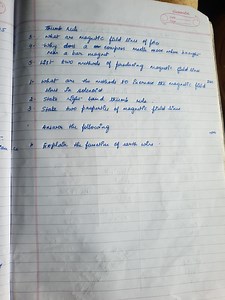 thumb rule
3. what are magnetic field lines of force
4. Why does a compass needle move when brought
near a bar magnet
5. List two methods of producing magnetic field lines
1. what are the methods to increase the magnetic field
lines in solenoid
2. State right hand thumb rule
3 State two properties of magnetic field lines
Answer the following
Explain the function of earth wire